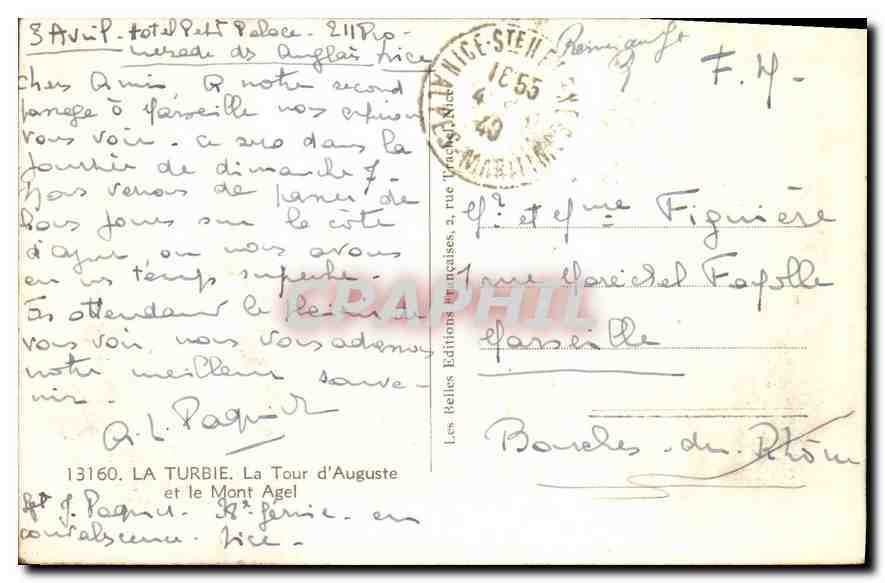 3 Avril - Hotel Petit Palace - 211 Pro-
menade des Anglais Nice
Chers Amis, A notre second
passage à Marseille nous espérons
vous voir. Ce sera dans la
journée de dimanche 7.
Nous venons de passer de
bons jours sur la côte
d'azur, ou nous avons
eu un temps superbe.
En attendant le plaisir de
vous voir, nous vous adressons
notre meilleur souve-
nir.
13160. LA TURBIE. La Tour d'Auguste
et le Mont Agel
J. Paquet. Génie. en
convalescence. Nice.
Les Belles Editions Françaises, 2, rue Trachel, Nice
16 55
4
40
F. M.
Mr et Mme Figuière
rue Maréchal Fayolle
Marseille
Bouches-du-Rhône
CPAPHIL